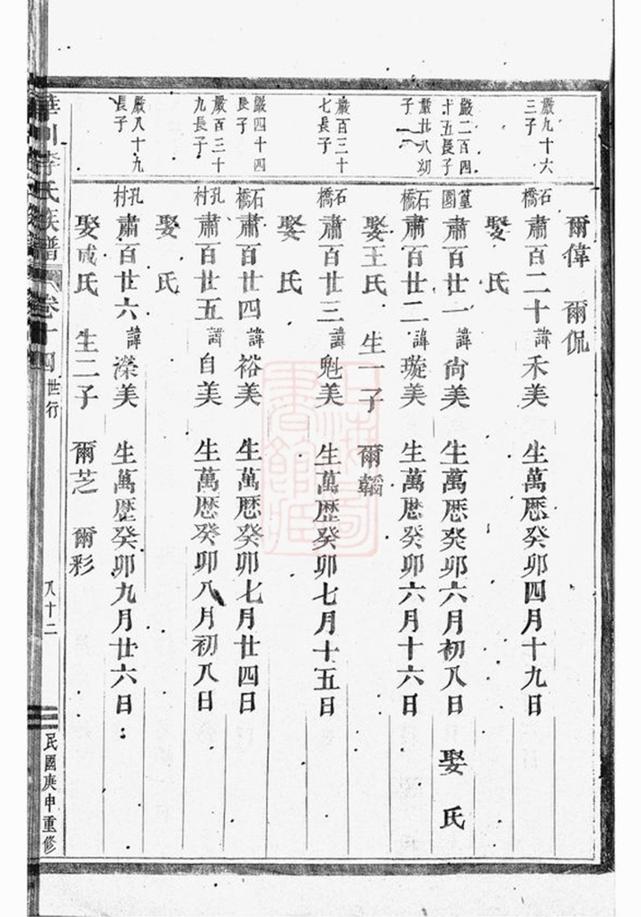 爾偉 爾侃
嚴九十六三子
石橋 肅百二十 諱禾美 生萬厯癸卯四月十九日
娶 氏
嚴二百四十五長子
篁園 肅百廿一 諱尙美 生萬厯癸卯六月初八日 娶 氏
嚴廿八幼子
石橋 肅百廿二 諱璇美 生萬厯癸卯六月十六日
娶王氏 生一子 爾韜
嚴百三十七長子
石橋 肅百廿三 諱魁美 生萬厯癸卯七月十五日
娶 氏
嚴四十四長子
石橋 肅百廿四 諱裕美 生萬厯癸卯七月廿四日
嚴百三十九長子
孔村 肅百廿五 諱自美 生萬厯癸卯八月初八日
娶 氏
嚴八十九長子
孔村 肅百廿六 諱濴美 生萬厯癸卯九月廿六日
娶戚氏 生二子 爾芝 爾彩
華川李氏族譜 卷十四 世行 八十二 民國庚申重修